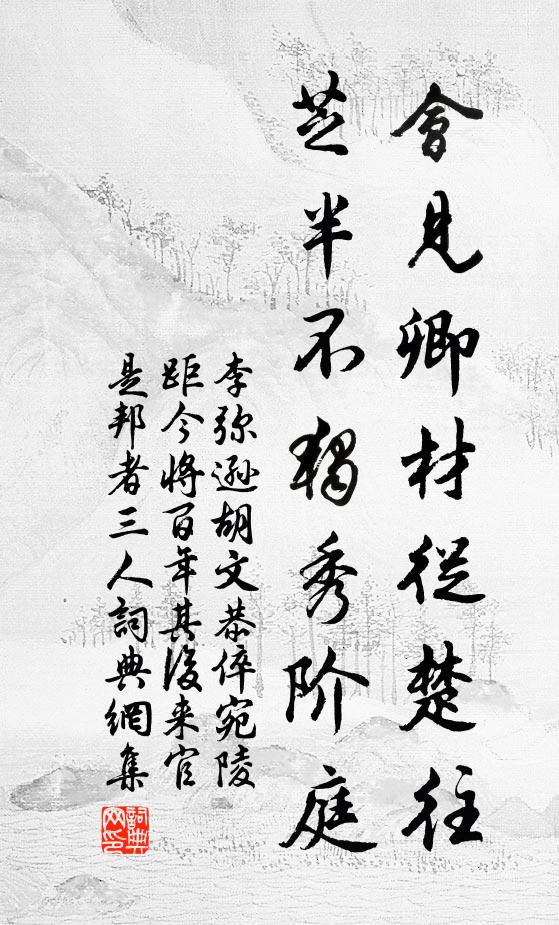 會見卿材從楚往
芝半不獨秀阶庭
李弥逊胡文恭倅宛陵
距今将百年其後来官
是邦者三人詞典網集
詞典
网印